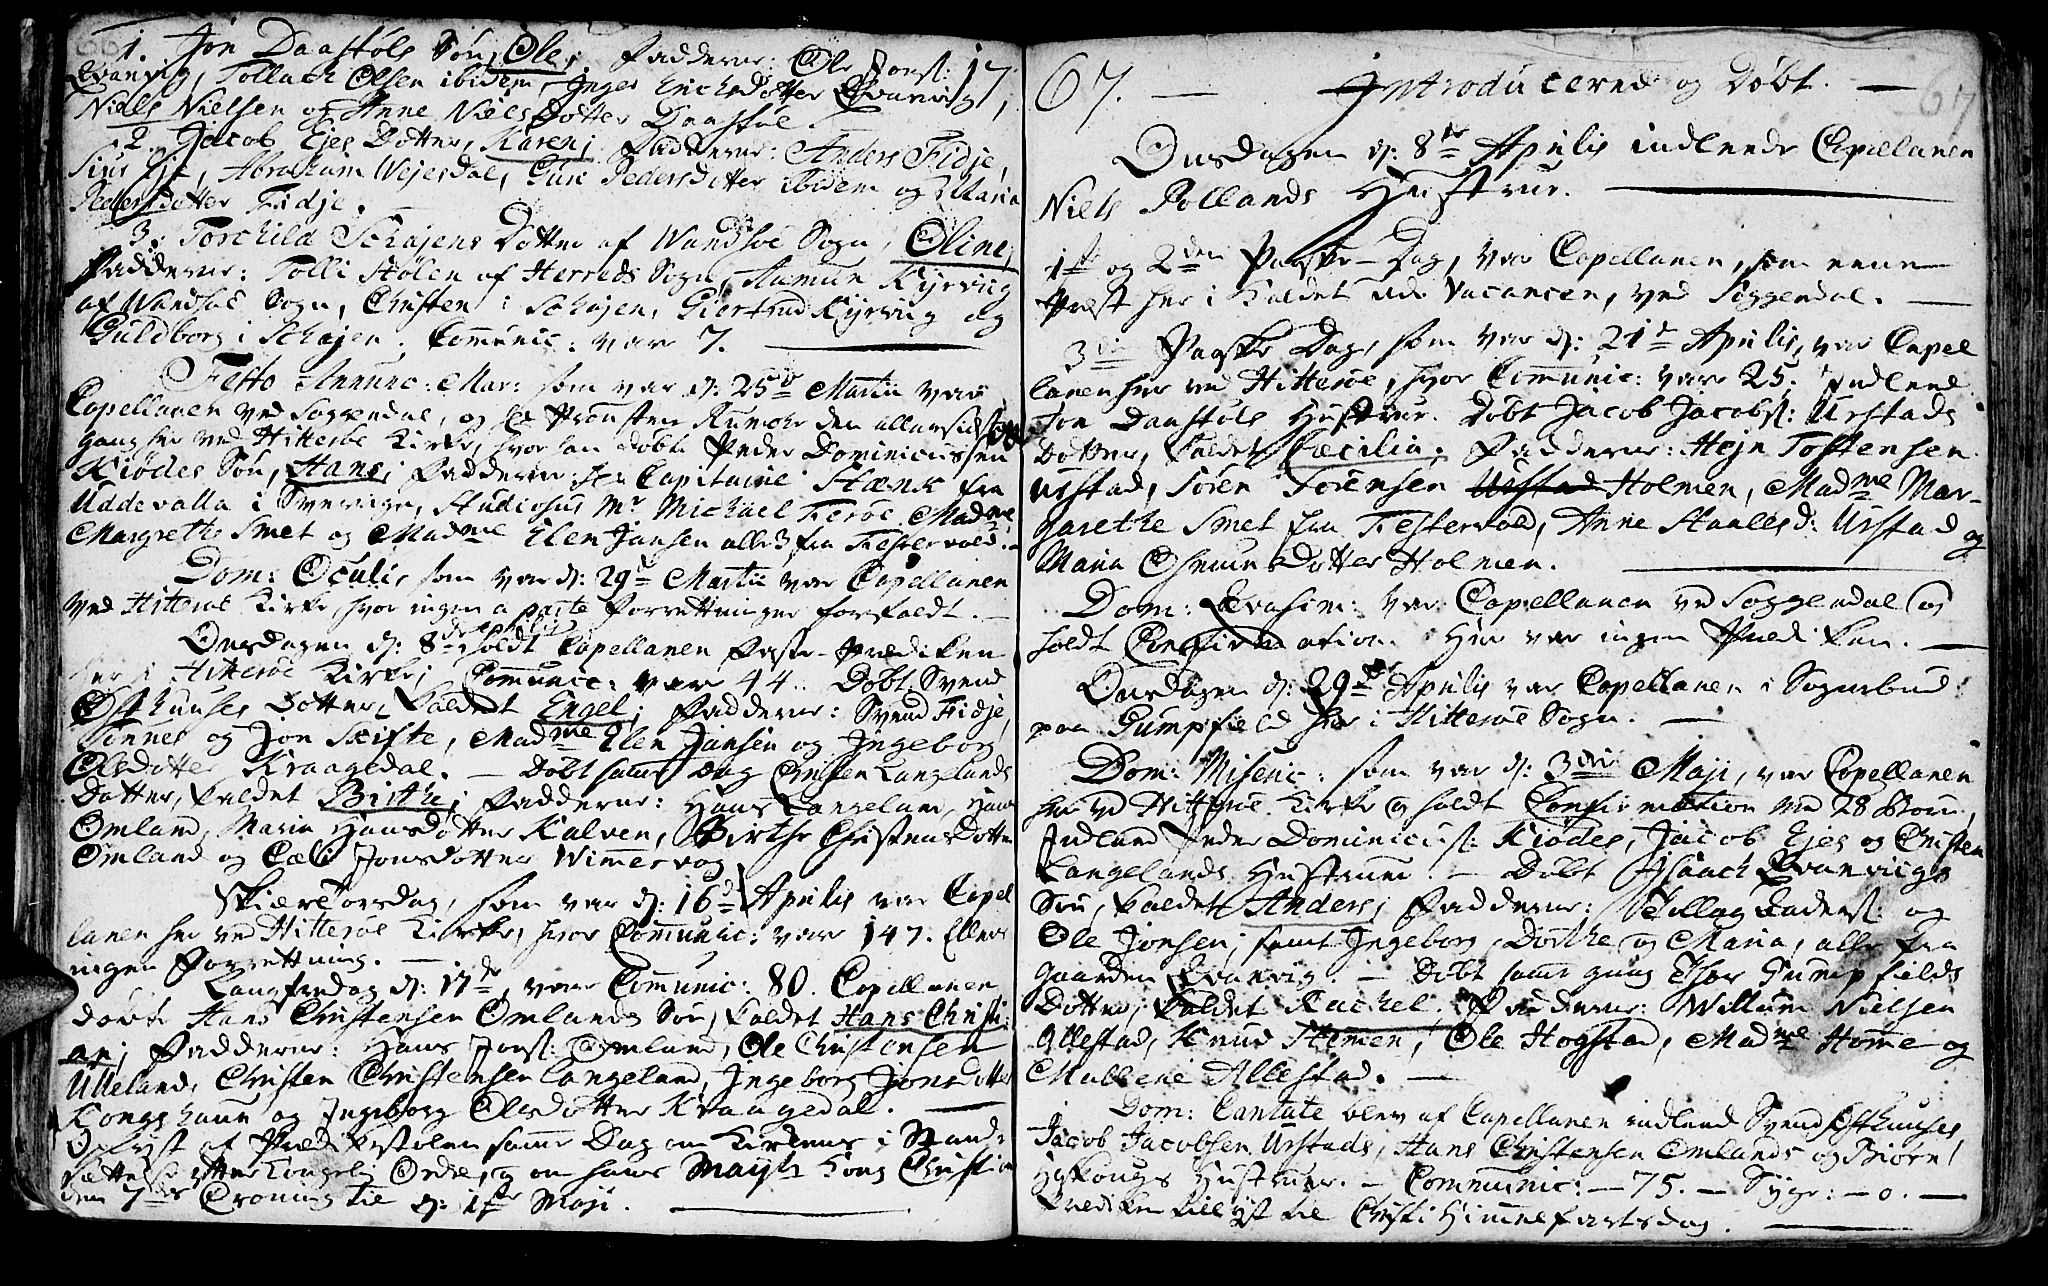 1. Jon Daastøls Søn, Ole; Fadderne: Ole Jons:
Evanvig, Tollach Olsen ibidem, Inger Erichsdotter Evanvig,
Niels Nielsen og Anne Nielsdotter Daastøl.
2. Jacob Ejes Dotter, Karen; Fadderne: Anders Fidje,
Siur Eje, Abraham Wejesdal, Guri Pedersdotter ibidem og Maria
Pedersdotter Fidje.
3. Torchild Schajens Dotter af Wandsøe Sogn, Oline,
Fadderne: Tolli Stølen af Herreds Sogn, Aamun Kyrvig
af Wandsøe Sogn, Christen Schajen, Giertrud Kyrvig og
Guldborg i Schajen. Communic: var 7.
Festo Annunc: Mar: som var d: 25de Martii var
Capellanen ved Soggendal, og Hr Provsten den allersidste
gang her ved Hitterøe Kirke, hvor han døbte Peder Dominicussen
Kiødes Søn, Hans; Fadderne: Hr Capitaine Stænk fra
Uddevalla i Sverrige, Studiosus Mr Michael Feroe, Madme
Margrethe Smet og Madme Elen Jansen alle 3 fra Festervold.
Dom: Oculi, som var d: 29de Martii var Capellanen
ved Hitterøe Kirke, hvor ingen a parte Forrettninger forefaldt.
Onsdagen d: 8de Aprilis holdt Capellanen Faste-Prædiken
her i Hitterøe Kirke; Communic: var 44. Døbt Svend
Østhuuses Dotter, kaldet Engel; Fadderne: Svend Fidje,
Tønnes og Jon Skifte, Madme Elen Jansen og Ingeborg
Olsdotter Kraagedal. — Døbt samme Dag Christen Langelands
Dotter, kaldet Birthe; Fadderne: Hans Langeland, Hans
Omland, Maria Hansdotter Kalven, Birthe Christensdotter
Omland og Cæli Jonsdotter Wimmervog.
Skiærtorsdag, som var d: 16de Aprilis var Capel
lanen her ved Hitterøe Kirke, hvor Communic: var 147. Ellers
ingen Forrettning. —
Langfredag d: 17de, var Communic: 80. Capellanen
døbte Hans Christensen Omlands Søn, kaldet Hans Christi
an; Fadderne: Hans Jons: Omland, Ole Christensen
Ulleland, Christen Christensen Langeland, Ingeborg Jonsdotter
Kongshavn og Ingeborg Olsdotter Kraagedal. —
Oplyst af Prædikestolen samme Dag om Kirkens i Stand
sættelse efter Kongelig Ordre, og om hans Mayts Kong Christian
den 7des Croning til d: 1ste Maji.
67. — Introducered og Døbt. — 67
Onsdagen d: 8de Aprilis indleede Capellanen
Niels Rollands Hustrue.
1ste og 2den Paaske-Dag, var Capellanen, som eene
Præst her i Kaldet udi Vacancen, ved Soggendal. —
3die Paaske Dag, som var d: 21de Aprilis, var Capel
lanen her ved Hitterøe, hvor Communic: var 25. Indleed
Jon Daastøls Hustrue. Døbt Jacob Jacobs: Urstads
Dotter, kaldet Cæcilia, Fadderne: Heje Tostensen
Urstad, Søren Sørensen Urstad Holmen, Madme Mar-
garethe Smet fra Festervold, Anne Staalesd: Urstad og
Maria Osmunsdotter Holmen.
Dom: Qvasim: var Capellanen ved Soggendal og
holdt Confirmation. Her var ingen Prædiken. —
Onsdagen d: 29de Aprilis var Capellanen i Sognebud
paa Gumpfield her i Hitterøe Sogn. —
Dom: Miseric: som var d: 3die Maji, var Capellanen
her ved Hitterøe Kirke og holdt Confirmation med 28 Børn,
Indleed Peder Dominicus: Kiødes, Jacob Ejes og Christen
Langelands Hustruer. — Døbt Isaach Evanvigs
Søn, kaldet Anders; Fadderne: Tollag Laders: og
Ole Jonsen; samt Ingeborg, Dorthe og Maria, alle fra
Gaarden Evanvig. — Døbt samme gang Thor Gumpfields
Dotter, kaldet Rachel; Fadderne: Willum Nielsen
Allestad, Knud Stemen, Ole Hogstad, Madme Home og
Mallene Allestad. —
Dom: Cantate blev af Capellanen indleed Svend Østhuuses,
Jacob Jacobsen Urstads, Hans Christensen Omlands og Biørn
Hustruer. — Communic: — 75. — Syge: — 0. —
Prædiken tillyst til Christi Himmelfartsdag.